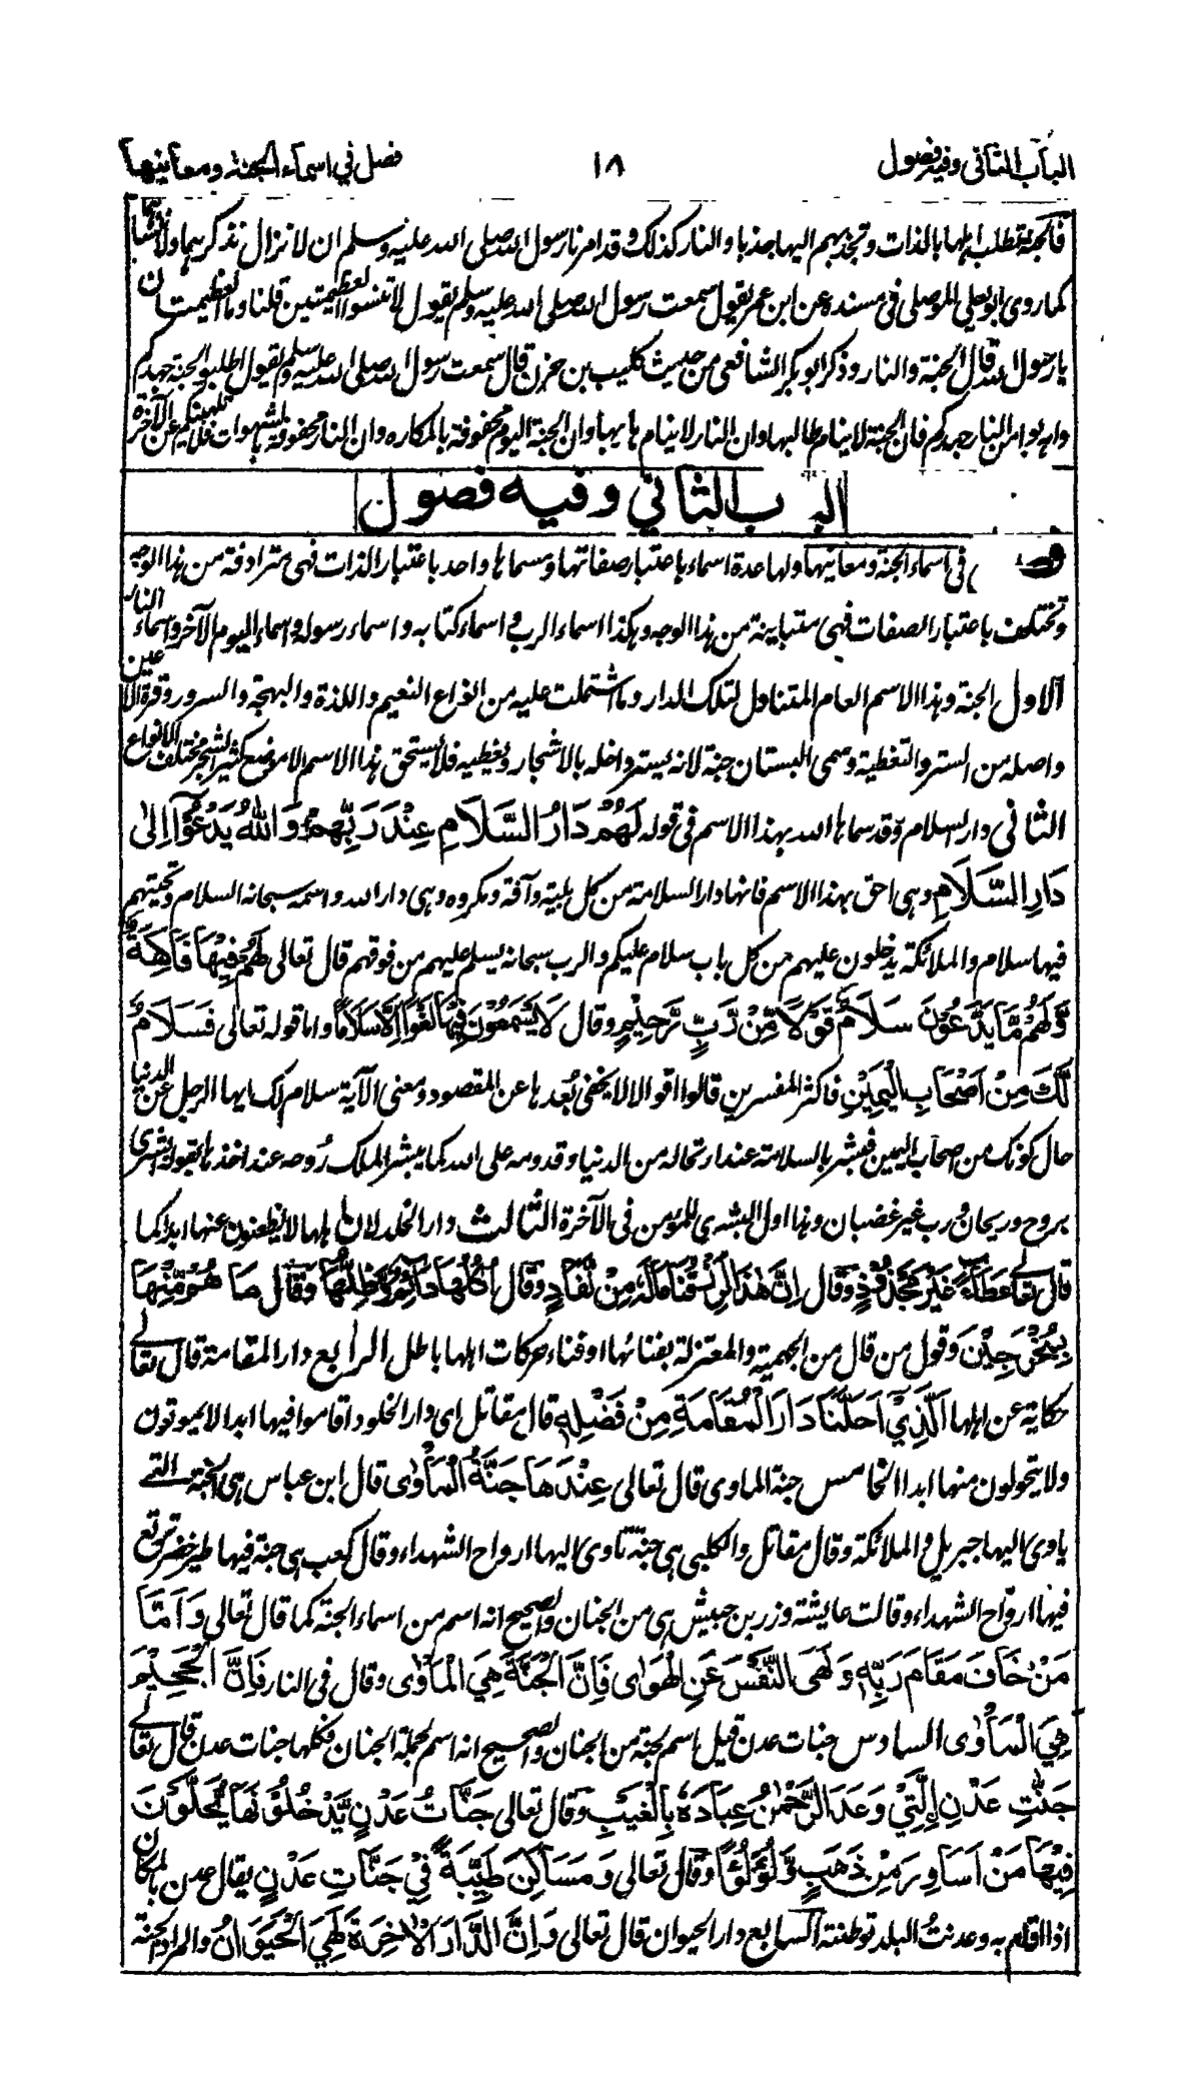 الباب الثاني وفيه فصول ١٨ فصل في اسماء الجنة ومعانيها
فالجنة تطلب اهلها بالذات وتجذبهم اليها جذبا والنار كذلك وقد امرنا رسول الله صلى الله عليه وسلم ان لا نزال نذكرهما ولا ننساهما
كما روى ابو يعلى الموصلي في مسنده عن ابن عمر يقول سمعت رسول الله صلى الله عليه وسلم يقول لا تنسوا العظيمتين قلنا وما العظيمتان
يا رسول الله قال الجنة والنار وذكر ابو بكر الشافعي من حديث كليب بن حزن قال سمعت رسول الله صلى الله عليه وسلم يقول اطلبوا الجنة جهدكم
واهربوا من النار جهدكم فان الجنة لا ينام طالبها وان النار لا ينام هاربها وان الجنة اليوم محفوفة بالمكاره وان النار محفوفة بالشهوات فلا تلهينكم عن الآخرة
الباب الثاني وفيه فصول
في اسماء الجنة ومعانيها ولها عدة اسماء باعتبار صفاتها ومسماها واحد باعتبار الذات فهي مترادفة من هذا الوجه
وتختلف باعتبار الصفات فهي متباينة من هذا الوجه وهكذا اسماء الرب واسماء كتابه واسماء رسوله واسماء اليوم الآخر واسماء النار
الاول الجنة وهذا الاسم العام المتناول لتلك الدار وما اشتملت عليه من انواع النعيم واللذة والبهجة والسرور وقرة الاعين
واصله من الستر والتغطية وسمى البستان جنة لانه يستر داخله بالاشجار ويغطيه فلا يستحق هذا الاسم الا موضع كثير الشجر مختلف الانواع
الثاني دار السلام وقد سماها الله بهذا الاسم في قوله لَهُمْ دَارُ السَّلَامِ عِنْدَ رَبِّهِمْ وَاللهُ يَدْعُوٓا اِلىٰ
دَارِ السَّلَامِ وهي احق بهذا الاسم فانها دار السلامة من كل بلية وآفة ومكروه وهي دار الله واسمه سبحانه السلام وتحيتهم
فيها سلام والملائكة يدخلون عليهم من كل باب سلام عليكم والرب سبحانه يسلم عليهم من فوقهم قال تعالى لَهُمْ فِيْهَا فَاكِهَةٌ
وَّلَهُمْ مَّا يَدَّعُوْنَ سَلَامٌ قَوْلًا مِّنْ رَّبٍّ رَّحِيْمٍ وقال لَا يَسْمَعُوْنَ فِيْهَا لَغْوًا اِلَّا سَلَامًا واما قوله تعالى فَسَلَامٌ
لَّكَ مِنْ اَصْحَابِ الْيَمِيْنِ فاكثر المفسرين قالوا اقوالا لا يخفى بُعدها عن المقصود ومعنى الآية سلام لك ايها الراحل عن الدنيا
حال كونك من اصحاب اليمين فيبشر بالسلامة عند ارتحاله من الدنيا وقدومه على الله كما يبشر الملك رُوحه عند اخذها بقوله ابشري
بروح وريحان ورب غير غضبان وهذا اول البشرى للمؤمن في الآخرة الثالث دار الخلد لان اهلها لا يظعنون عنها ابدا كما
قال تعالى عَطَاءً غَيْرَ مَجْذُوْذٍ وقال اِنَّ هٰذَا لَرِزْقُنَا مَا لَهٗ مِنْ نَّفَادٍ وقال اُكُلُهَا دَائِمٌ وَّظِلُّهَا وقال مَا هُمْ مِّنْهَا
بِمُخْرَجِيْنَ وقول من قال من الجهمية والمعتزلة بفنائها او فناء حركات اهلها باطل الرابع دار المقامة قال تعالى
حكاية عن اهلها الَّذِيْٓ اَحَلَّنَا دَارَ الْمُقَامَةِ مِنْ فَضْلِهٖ قال مقاتل اي دار الخلود اقاموا فيها ابدا لا يموتون
ولا يتحولون منها ابدا الخامس جنة الماوى قال تعالى عِنْدَهَا جَنَّةُ الْمَأْوٰى قال ابن عباس هي الجنة التي
ياوى اليها جبريل والملائكة وقال مقاتل والكلبي هي جنة تاوى اليها ارواح الشهداء وقال كعب هي جنة فيها طير خضر ترتع
فيها ارواح الشهداء وقالت عايشة وزر بن حبيش هي من الجنان والصحيح انه اسم من اسماء الجنة كما قال تعالى وَاَمَّا
مَنْ خَافَ مَقَامَ رَبِّهٖ وَنَهَى النَّفْسَ عَنِ الْهَوٰى فَاِنَّ الْجَنَّةَ هِيَ الْمَأْوٰى وقال في النار فَاِنَّ الْجَحِيْمَ
هِيَ الْمَأْوٰى السادس جنات عدن قيل اسم لجنة من الجنان والصحيح انه اسم لجملة الجنان فكلها جنات عدن قال تعالى
جَنّٰتِ عَدْنِ اِلَّتِيْ وَعَدَ الرَّحْمٰنُ عِبَادَهٗ بِالْغَيْبِ وقال تعالى جَنَّاتُ عَدْنٍ يَّدْخُلُوْنَهَا يُحَلَّوْنَ
فِيْهَا مَنْ اَسَاوِرَ مِنْ ذَهَبٍ وَّلُؤْلُؤًا وقال تعالى وَمَسَاكِنَ طَيِّبَةً فِيْ جَنَّاتِ عَدْنٍ يقال عدن بالمكان
اذا اقام به وعدنتُ البلد توطنته السابع دار الحيوان قال تعالى وَاِنَّ الدَّارَ الْاٰخِرَةَ لَهِيَ الْحَيَوَانُ والمراد الجنة